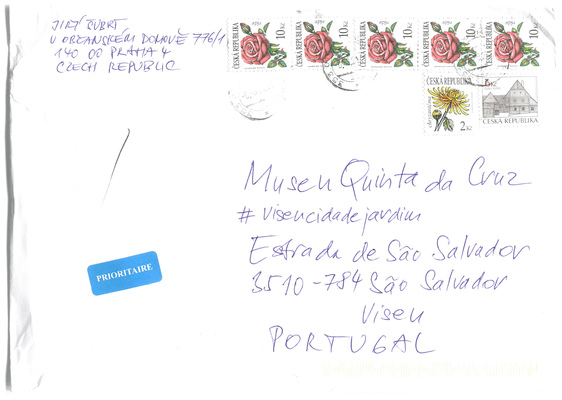 JIŘÍ ŽUBRT
V OBČANSKÉM DOMOVĚ 776/1
140 00 PRAHA 4
CZECH REPUBLIC
ČESKÁ REPUBLIKA 10 Kč
ČESKÁ REPUBLIKA 10 Kč
ČESKÁ REPUBLIKA 10 Kč
ČESKÁ REPUBLIKA 10 Kč
ČESKÁ REPUBLIKA 10 Kč
ČESKÁ REPUBLIKA
2 Kč
ČESKÁ REPUBLIKA
Museu Quinta da Cruz
#visencidadejardim
Estrada de São Salvador
3510-784 São Salvador
Viseu
PORTUGAL
PRIORITAIRE